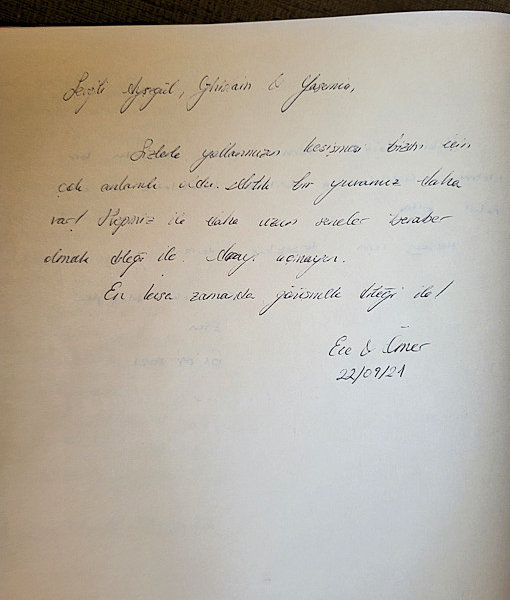 Sevgili Ayşegül, Ghislain & Yasemin,
Sizlerle yollarımızın kesişmesi bizim için
çok anlamlı oldu. Artık bir yuvamız daha
var! Hepiniz ile daha uzun seneler beraber
olmak dileği ile. Arayı açmayın.
En kısa zamanda görüşmek dileği ile!
Ece & Ömer
22/09/21